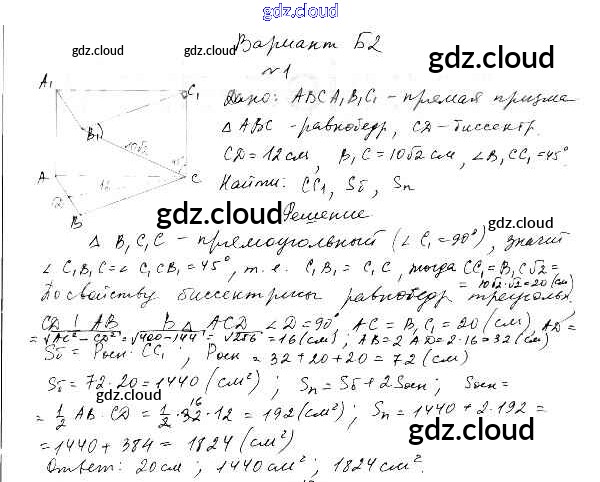 gdz.cloud
Вариант Б2
gdz.cloud
gdz.cloud
№1
A₁
C₁
gdz.cloud
Дано: ABCA₁B₁C₁ - прямая призма
B₁
10√2
△ABC - равнобедр, CD - биссектр.
45°
CD = 12 см, B₁C = 10√2 см, ∠B₁CC₁ = 45°
A
16
C
Найти: CC₁, Sб, Sп
D
B
gdz.cloud
Решение
gdz.cloud
△B₁C₁C - прямоугольный (∠C₁ = 90°), значит
∠C₁B₁C = ∠C₁CB₁ = 45°, т.е. C₁B₁ = C₁C, тогда CC₁ = B₁C√2 =
= 10√2·√2 = 20 (см)
По свойству биссектрисы равнобедр треугольн.
gdz.cloud
gdz.cloud
CD ⊥ AB В △ACD ∠D = 90° AC = B₁C₁ = 20 (см), AD =
= √AC² - CD² = √400 - 144 = √256 = 16 (см); AB = 2AD = 2·16 = 32 (см)
Sб = Pосн·CC₁; Pосн = 32 + 20 + 20 = 72 (см)
Sб = 72·20 = 1440 (см²); Sп = Sб + 2Sосн; Sосн =
= 1/2 AB·CD = 1/2·32·12 = 192 (см²); Sп = 1440 + 2·192 =
16
= 1440 + 384 = 1824 (см²)
gdz.cloud
gdz.cloud
Ответ: 20 см; 1440 см²; 1824 см².
gdz.cloud